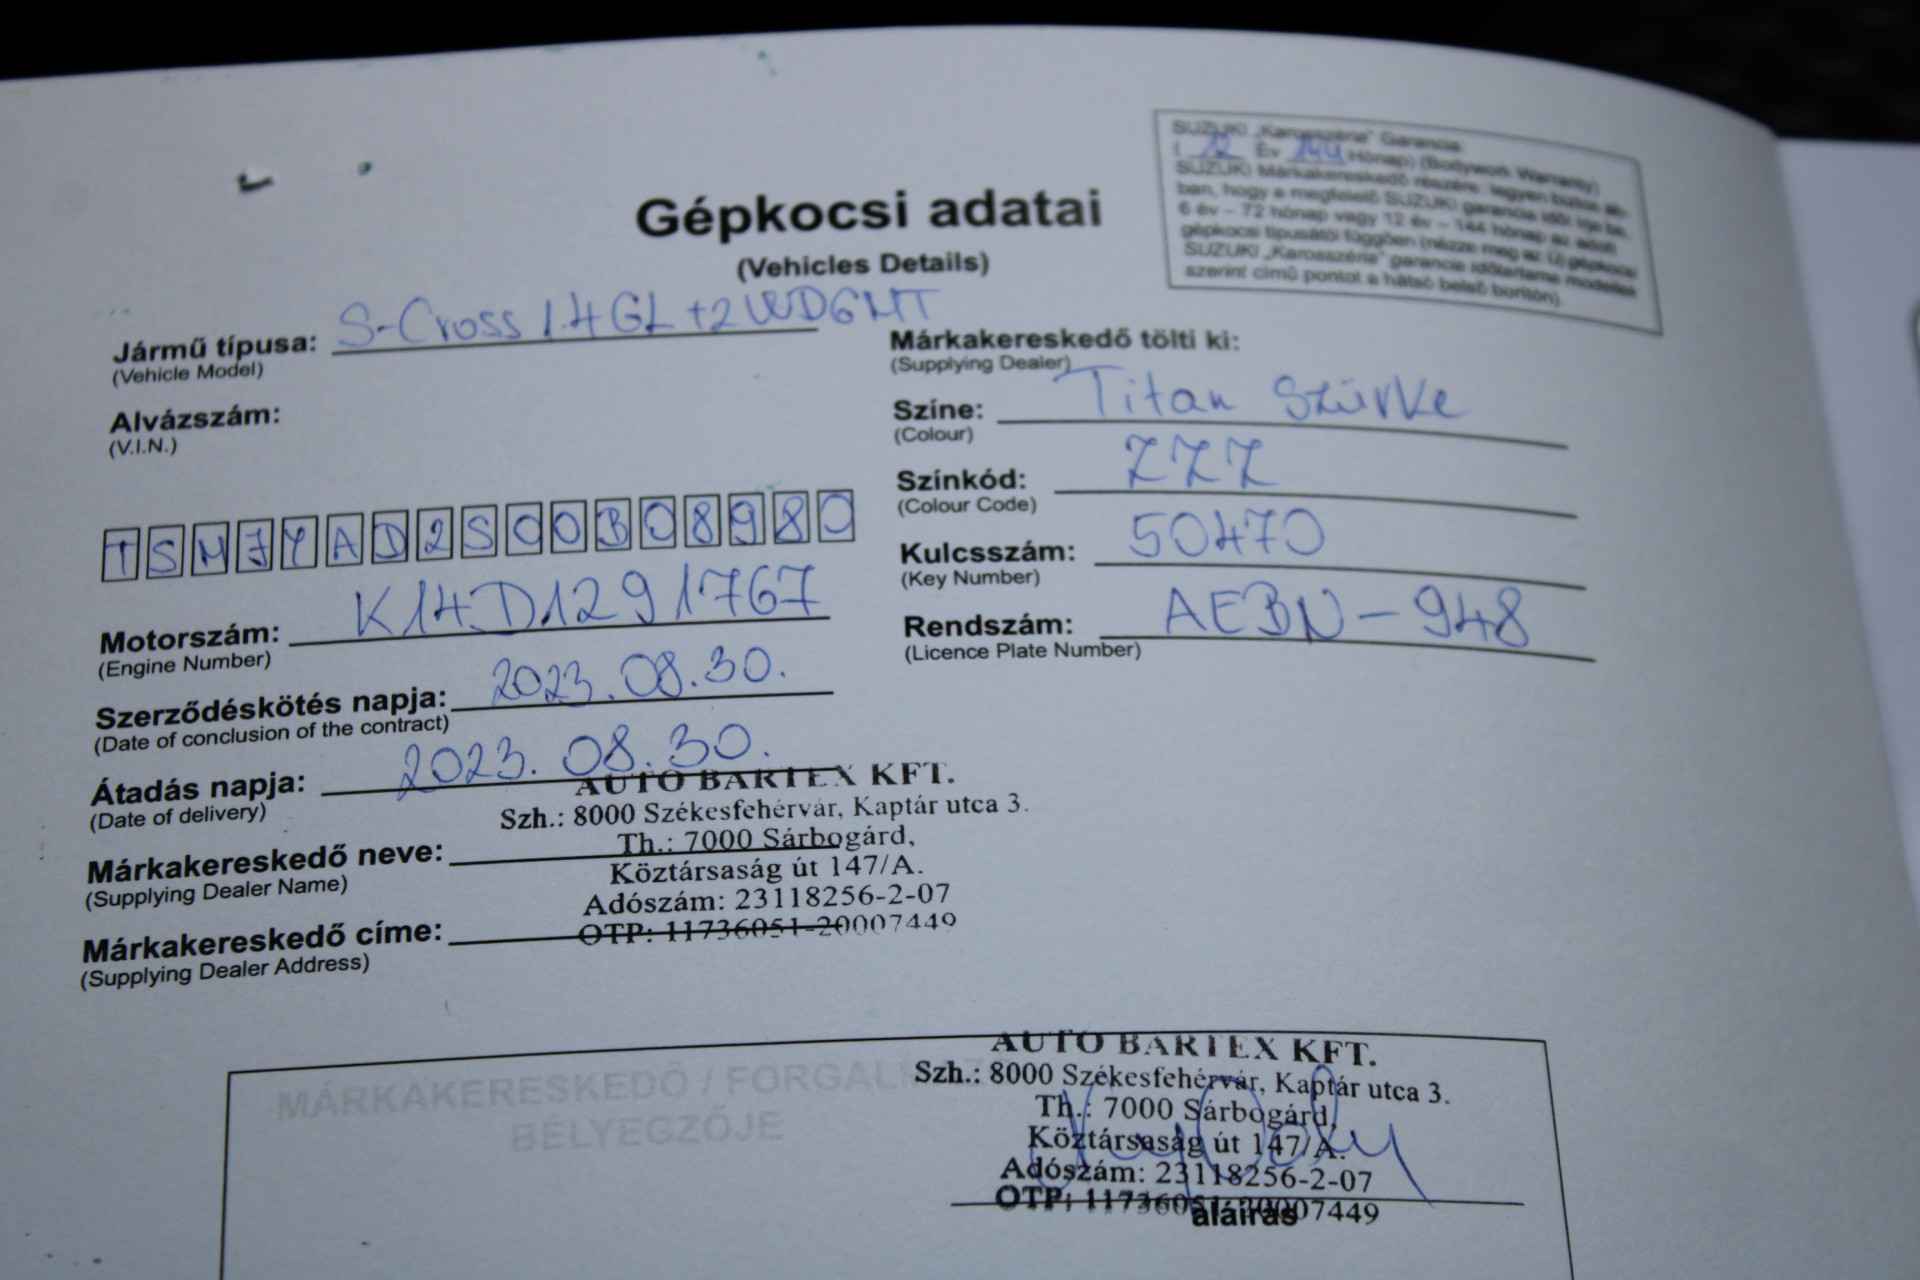 SUZUKI „Karosszéria" Garancia
( 12 Év 144 Hónap) (Bodywork Warranty)
SUZUKI Márkakereskedő részére: legyen biztos ab-
ban, hogy a megfelelő SUZUKI garancia időt írja be,
6 év – 72 hónap vagy 12 év – 144 hónap az adott
gépkocsi típusától függően (nézze meg az Új gépkocsi
SUZUKI „Karosszéria" garancia időtartama modellek
szerint című pontot a hátsó belső borítón).
Gépkocsi adatai
(Vehicles Details)
Jármű típusa: S-Cross 1.4 GL+2WD6MT
(Vehicle Model)
Alvázszám:
(V.I.N.)
TSMJYAD2S00B08980
Motorszám: K14D1291767
(Engine Number)
Szerződéskötés napja: 2023.08.30.
(Date of conclusion of the contract)
Átadás napja: 2023.08.30.
(Date of delivery)
Márkakereskedő neve:
(Supplying Dealer Name)
Márkakereskedő címe:
(Supplying Dealer Address)
AUTO BARTEX KFT.
Szh.: 8000 Székesfehérvár, Kaptár utca 3.
Th.: 7000 Sárbogárd,
Köztársaság út 147/A.
Adószám: 23118256-2-07
OTP: 11736051-20007449
Márkakereskedő tölti ki:
(Supplying Dealer)
Színe: Titan Szürke
(Colour)
Színkód: ZZZ
(Colour Code)
Kulcsszám: 50470
(Key Number)
Rendszám: AEBN-948
(Licence Plate Number)
MÁRKAKERESKEDŐ / FORGAL
BÉLYEGZŐJE
AUTO BARTEX KFT.
Szh.: 8000 Székesfehérvár, Kaptár utca 3.
Th.: 7000 Sárbogárd,
Köztársaság út 147/A.
Adószám: 23118256-2-07
OTP: 11736051-20007449
aláírás